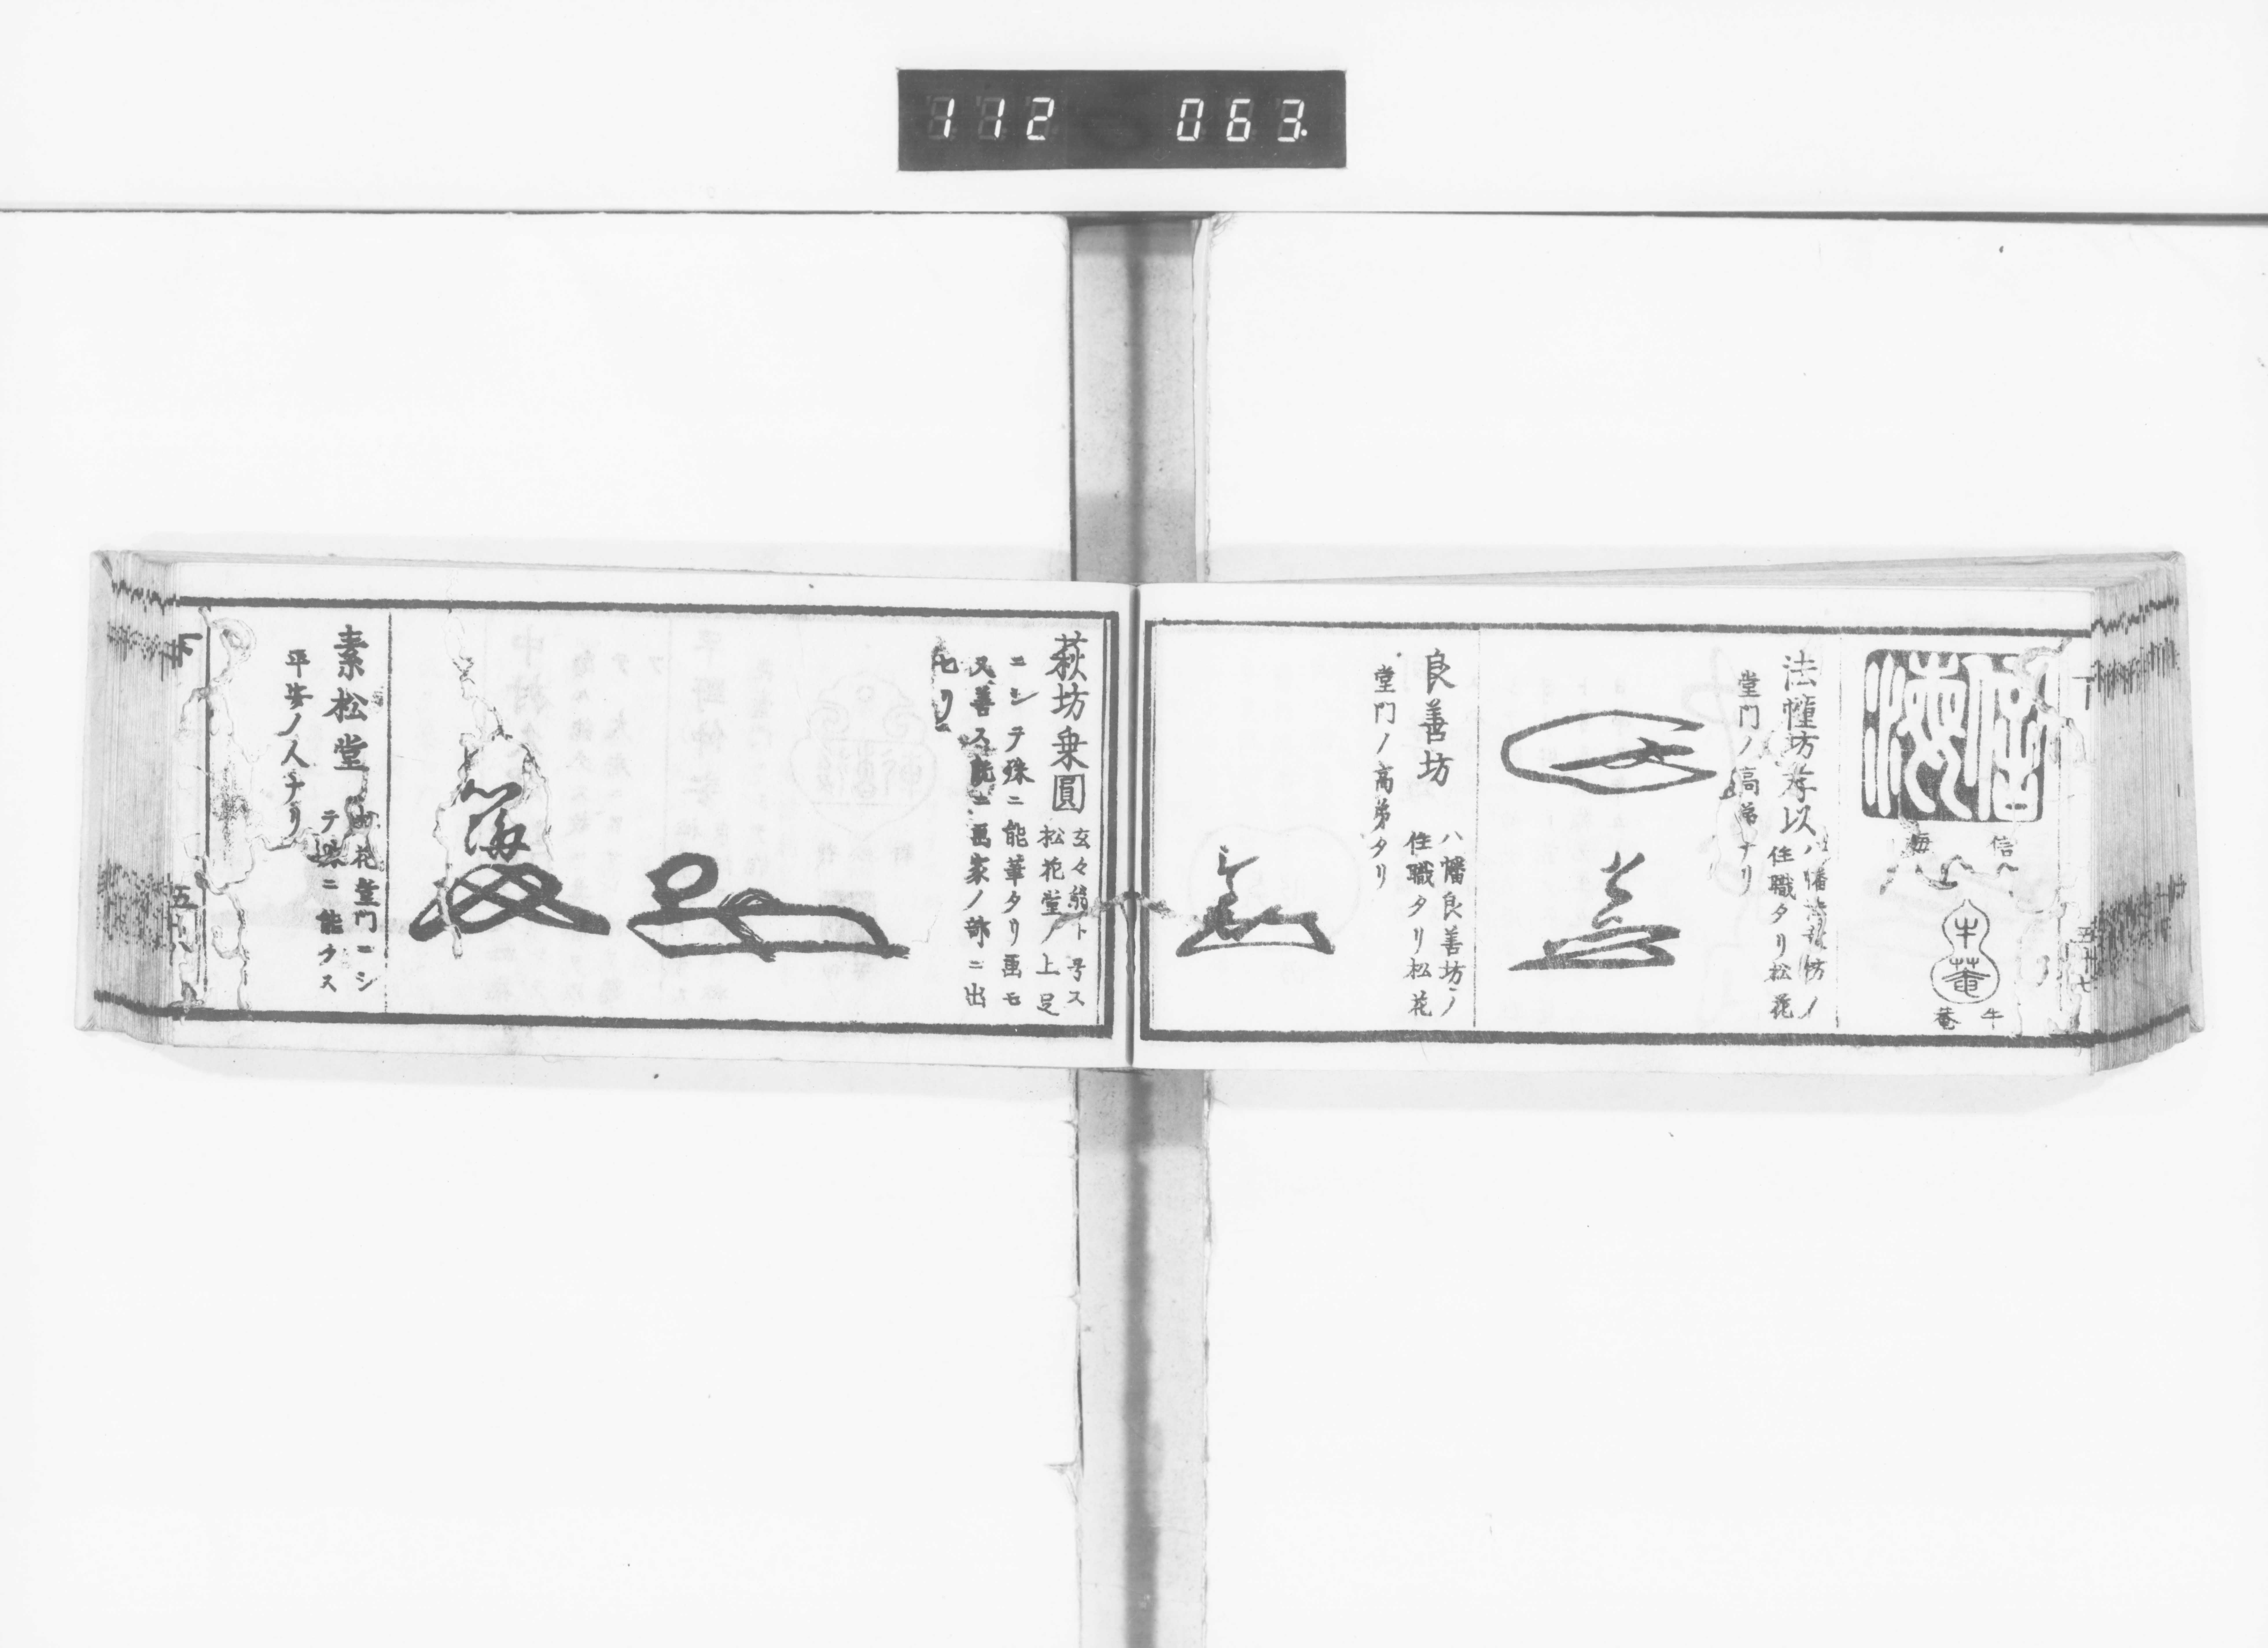 112 063.
信海
信
海
牛菴
牛
菴
法幢坊孝以
住職タリ松花
堂門ノ高弟ナリ
良善坊
八幡良善坊ノ
住職タリ松花
堂門ノ高弟タリ
下
五十七
萩坊乗圓
玄々翁ト号ス
松花堂ノ上足
ニシテ殊ニ能華タリ畫モ
又善ス故ニ畫家ノ部ニ出
セリ
素松堂
花堂門ニシ
テ殊ニ能クス
平安ノ人ナリ
下
五十八